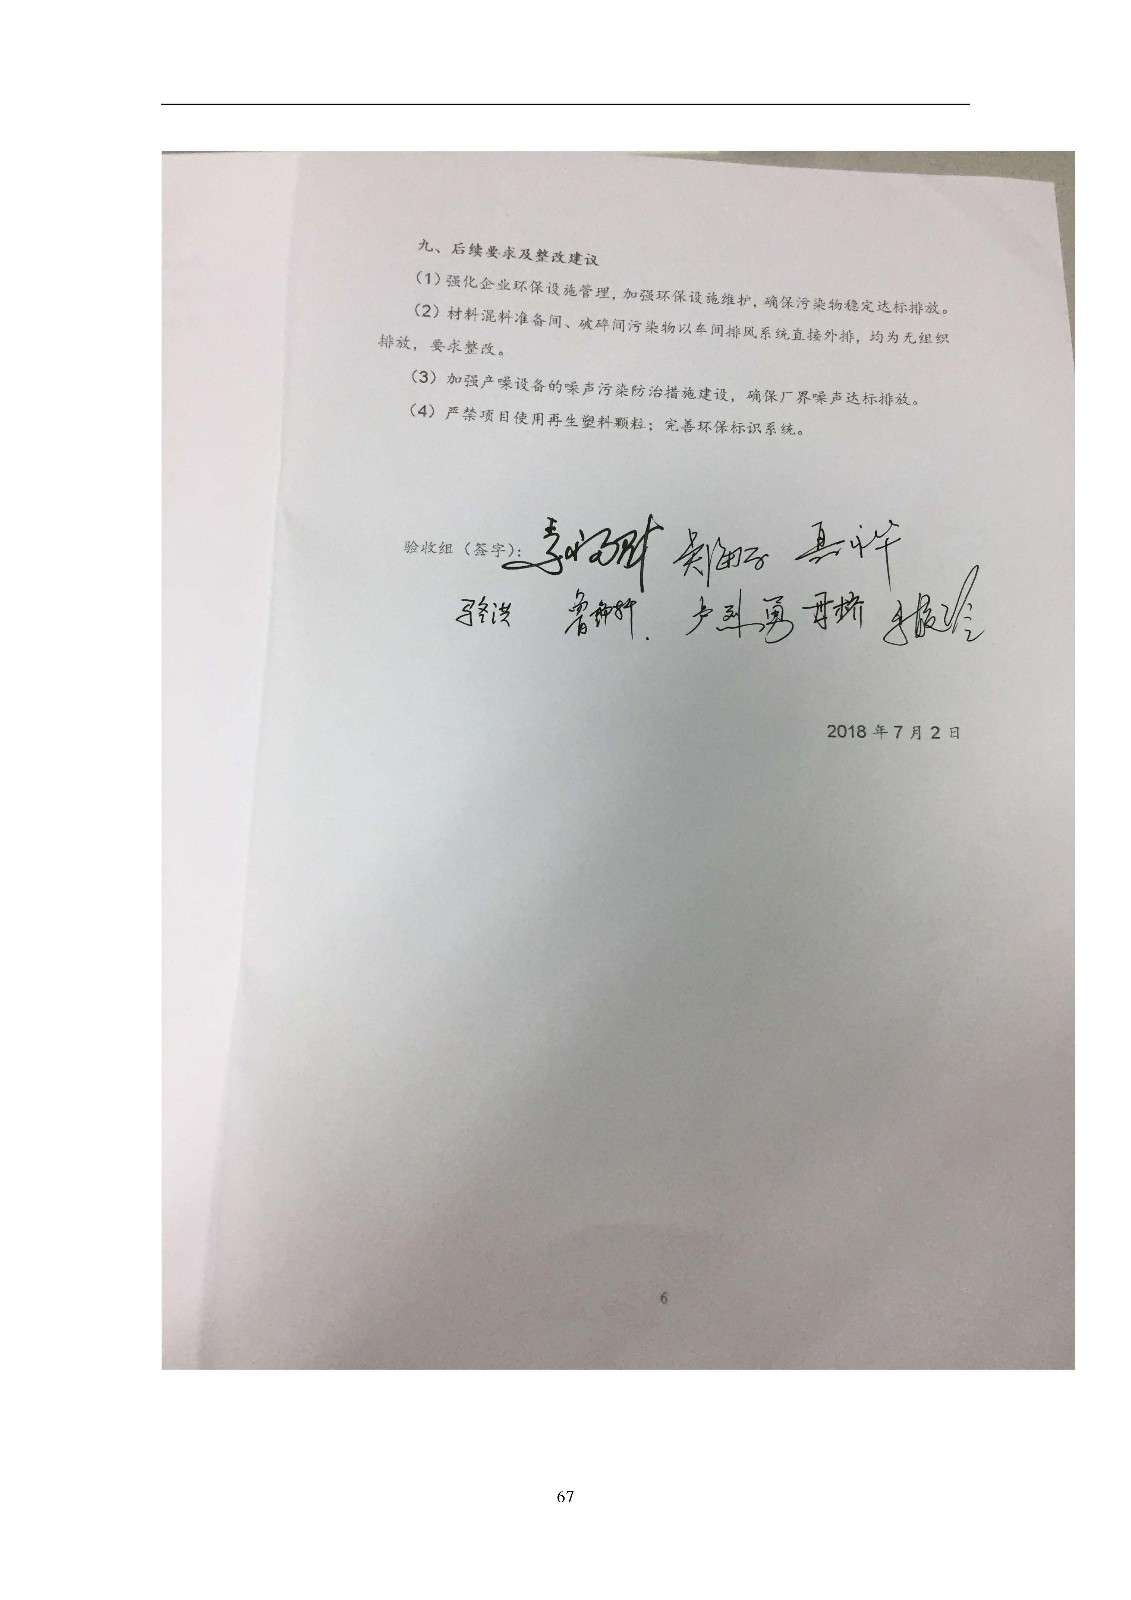 九、后续要求及整改建议
(1)强化企业环保设施管理，加强环保设施维护，确保污染物稳定达标排放。
(2)材料混料准备间、破碎间污染物以车间排风系统直接外排，均为无组织
排放，要求整改。
(3)加强产噪设备的噪声污染防治措施建设，确保厂界噪声达标排放。
(4)严禁项目使用再生塑料颗粒；完善环保标识系统。
验收组（签字）：
卢烈勇
2018年7月2日
6
67